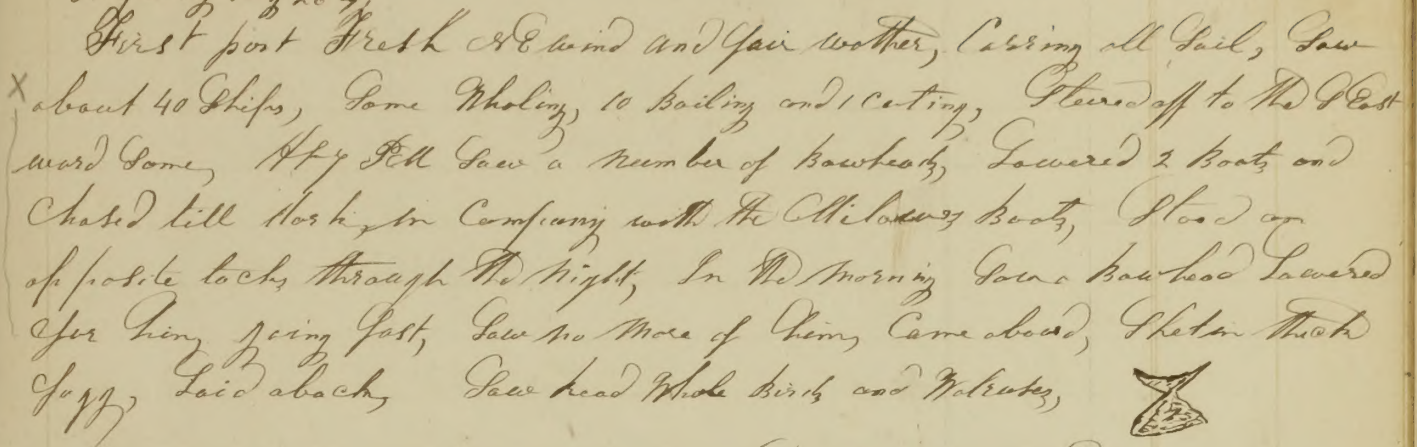 First part Fresh NE wind and fair weather, Carring all Sail, Saw
about 40 Ships, Some Whaling, 10 Boiling and 1 cuting, Steered off to the S East
ward Some, At 7 PM Saw a number of Bowheads, Lowered 2 Boats and
Chased till dark, in Company with the Boats, Stood on
opposite tacks through the Night, In the Morning Saw a bowhead Lowered
for him, going fast, Saw no More of him, Came aboard, Shet in thick
fogg, Laid aback, Saw head Whale Birds and Walruses,